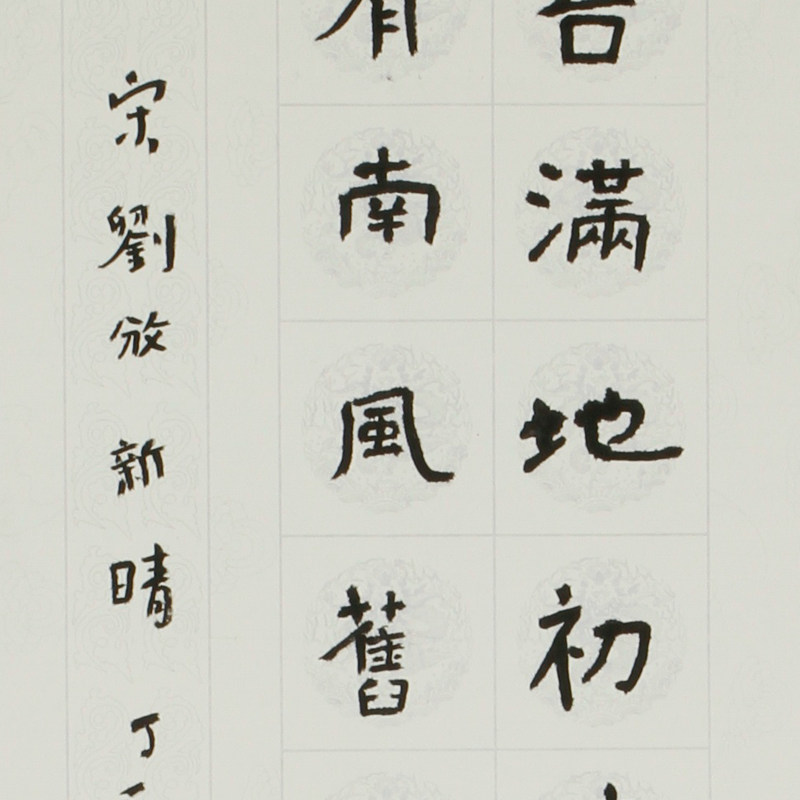 苔滿地初
有南風舊
宋劉攽新晴丁